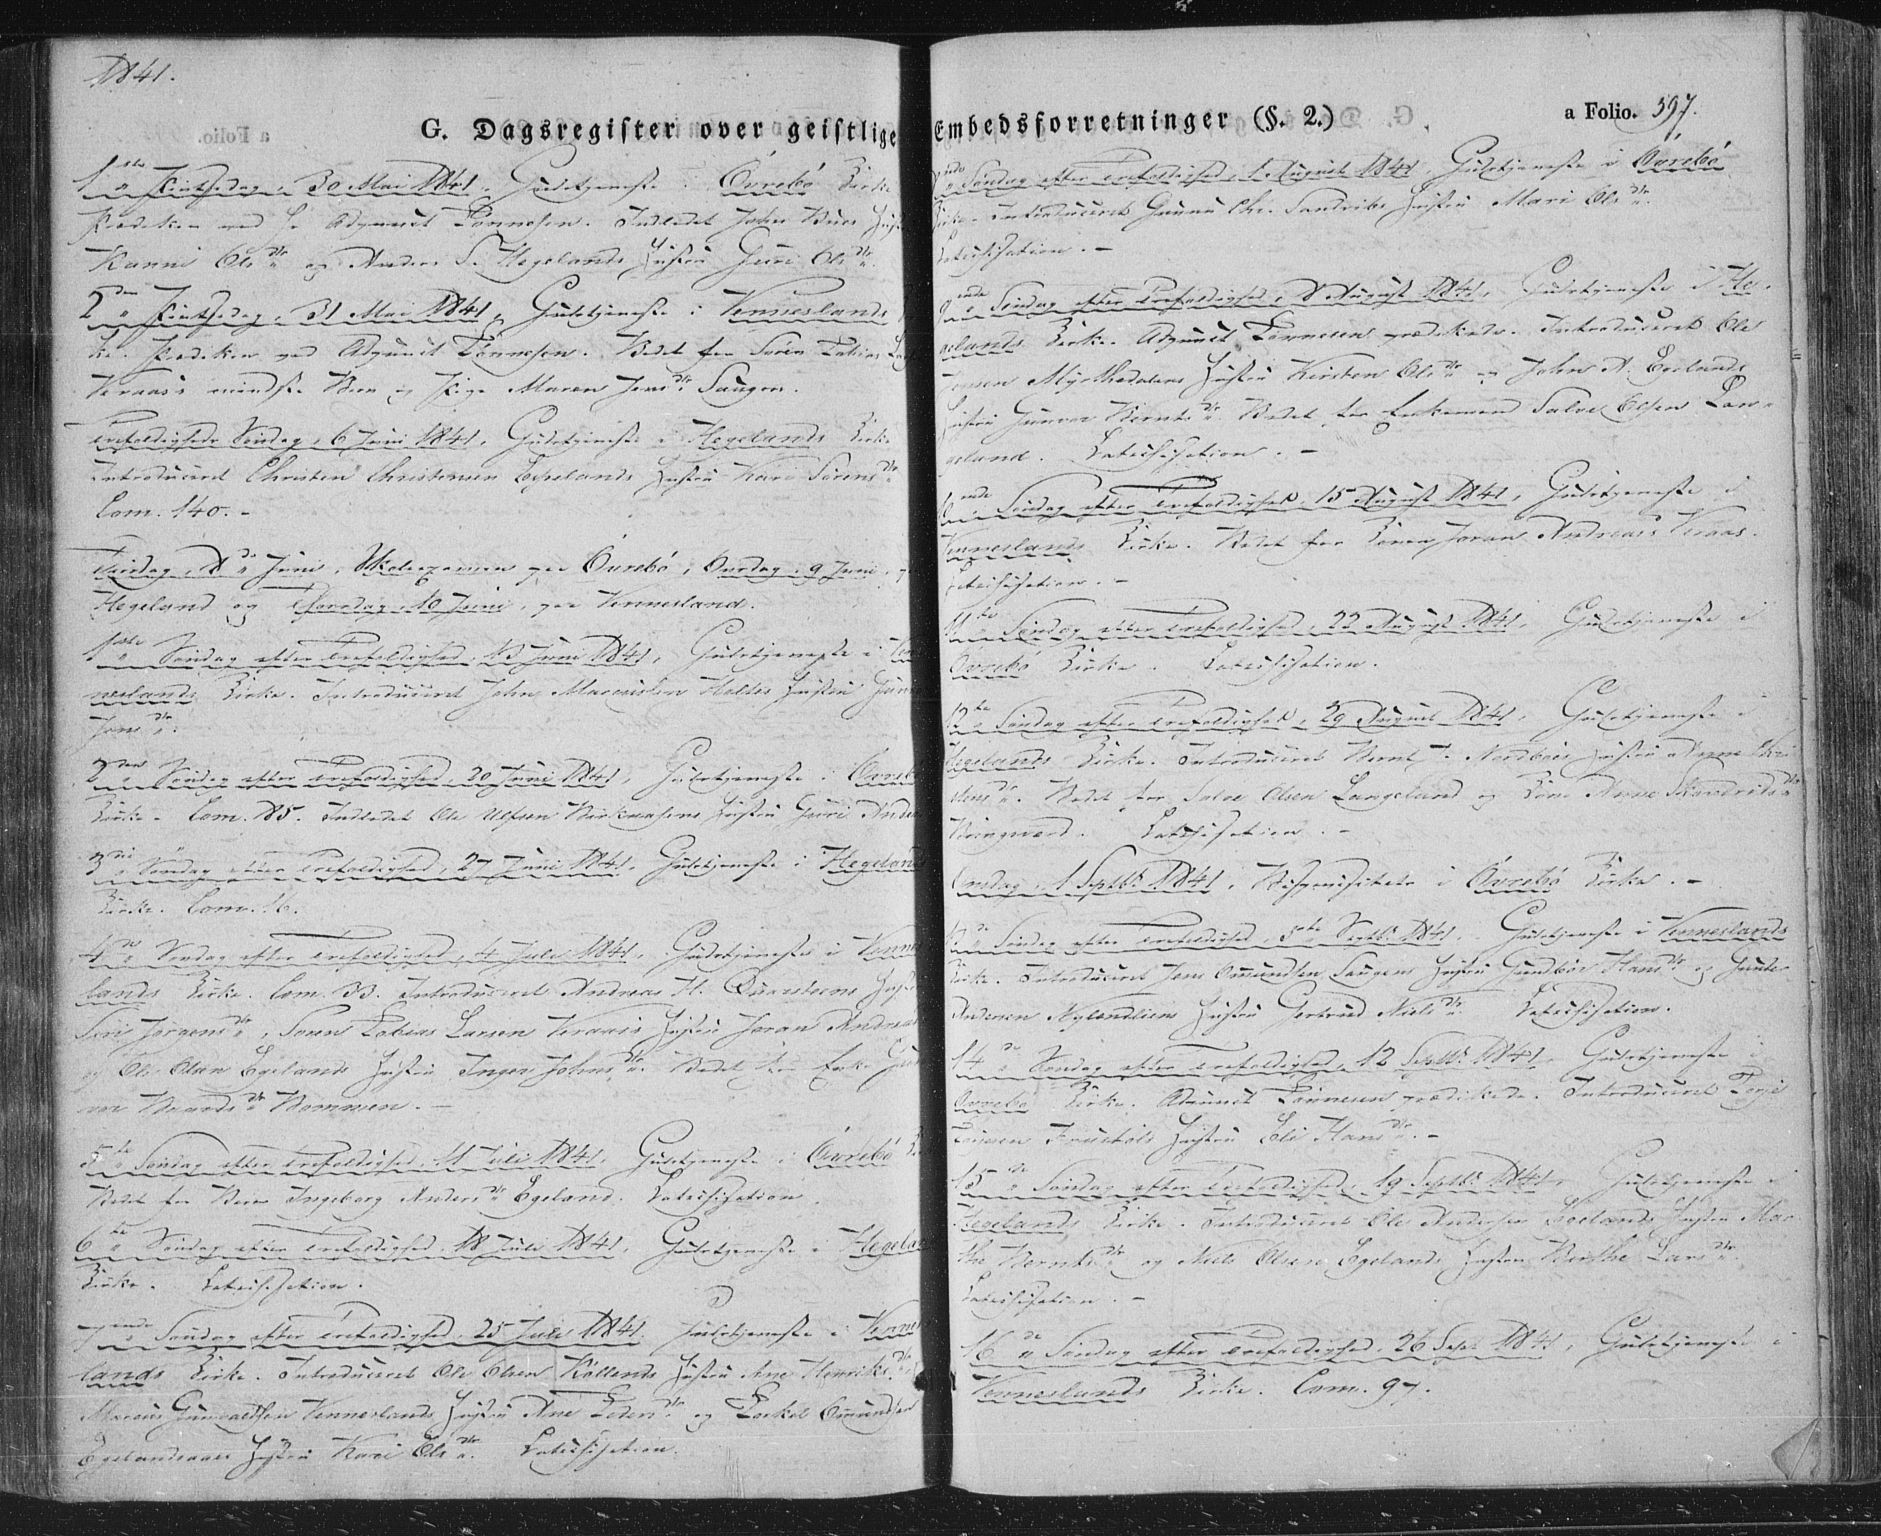 1841.
G. Dagsregister over geistlige Embedsforretninger (§. 2.)
a Folio. 397.
1ste Pintsedag, 30 Mai 1841, Gudstjeneste i Øvrebö Kirke
Prædiken ved Adjunct Tönnesen. Indledet John
Ols dtr og Anders S. Hegelands Hustru Guri Ols dtr.
2den Pintsedag, 31 Mai 1841, Gudstjeneste i Venneslands
ke. Prædiken ved Adjunct Tönnesen. Bedet for Sören Tobias
Veraas's mindste Barn og Pige Maren Jens dtr Saugen.
Trefoldigheds Søndag, 6 Juni 1841, Gudstjeneste i Hegelands Kirke
Introduceret Christen Christensen Hustru Kari Sörens dtr
Com. 140. -
Tirsdag, 8de Juni, Skoleexamen paa Øvrebö, Onsdag, 9 Juni, paa
Hegeland og Torsdag, 10 Juni, paa Vennesland.
1ste Søndag efter Trefoldighed, 13 Juni 1841, Gudstjeneste i Ven
neslands Kirke. Introduceret John Hustru
Jens dtr.
2den Søndag efter Trefoldighed, 20 Juni 1841, Gudstjeneste i Øvrebö
Kirke. Com. 85. Indledet Ole Ulfsen Hustru Guri Anders
3die Søndag efter Trefoldighed, 27 Juni 1841, Gudstjeneste i Hegelands
Kirke. Com. 16.
4de Søndag efter Trefoldighed, 4 Juli 1841, Gudstjeneste i Vennes
lands Kirke. Com. 33. Introduceret Andreas H. Quarsteens Hustru
Siri Jörgens dtr, Sören Tobias Larsen Veraas's Hustru Joran Andreas
og Ole Olsen Egelands Hustru Inger Johns dtr. Bedet for Enke Gun
vor Baards dtr Bommen. -
5te Søndag efter Trefoldighed, 11 Juli 1841, Gudstjeneste i Øvrebö
Bedet for Ingeborg Anders dtr Egeland. Catechisation.
6te Søndag efter Trefoldighed, 18 Juli 1841, Gudstjeneste i Hegelands
Kirke. Catechisation.
7ende Søndag efter Trefoldighed, 25 Juli 1841, Gudstjeneste i Vennes
lands Kirke. Introduceret Ole Olsen Kollends Hustru Ane Henriks dtr,
Marcus Gunvaldsen Venneslands Hustru Ane Peders dtr og Torkel Omundsen
Egelandsaaes Hustru Kari Ols dtr. Catechisation.
Søndag efter Trefoldighed, 1 August 1841, Gudstjeneste i Øvrebö
Kirke. Introduceret Gunnu Chr. Sandriks Hustru Mari Ols dtr.
Catechisation. -
9ende Søndag efter Trefoldighed, 8 August 1841, Gudstjeneste i He-
gelands Kirke. Adjunct Tönnesen prædikede. Introduceret Ole
Jensen Hustru Kirsten Ols dtr og John A. Egelands
Hustru Gunvor Bernts dtr. Bedet for Enkemand Salve Olsen Lan-
geland. Catechisation. -
10ende Søndag efter Trefoldighed, 15 August 1841, Gudstjeneste i
Venneslands Kirke. Bedet for Konen Joran Andreas's Veraas.
Catechisation. -
11te Søndag efter Trefoldighed, 22 August 1841, Gudstjeneste i
Øvrebö Kirke. Catechisation.
12te Søndag efter Trefoldighed, 29 August 1841, Gudstjeneste i
Hegelands Kirke. Introduceret Bernt Hustru Anne
dtr. Bedet for Salve Olsen Langeland og Kone Anne dtr
Catechisation. -
Onsdag, 1 Septbr 1841, Bispevisitats i Øvrebö Kirke. -
13de Søndag efter Trefoldighed, 5te Septbr 1841, Gudstjeneste i Venneslands
Kirke. Introduceret Jens Omundsen Saugens Hustru Gundbör Hans dtr og Gunder
Andersen Hustru Gertrud Niels dtr. Catechisation.
14de Søndag efter Trefoldighed, 12 Septbr 1841, Gudstjeneste i
Øvrebö Kirke. Adjunct Tönnesen prædikede. Introduceret Terje
Hustru Eli Hans dtr. -
15de Søndag efter Trefoldighed, 19 Septbr 1841, Gudstjeneste i
Hegelands Kirke. Introduceret Ole Andersen Egelands Hustru Mar
the Bernts dtr og Niels Olsen Egelands Hustru Berthe Lars dtr.
Catechisation. -
16de Søndag efter Trefoldighed, 26 Sept 1841, Gudstjeneste i
Venneslands Kirke. Com. 97.